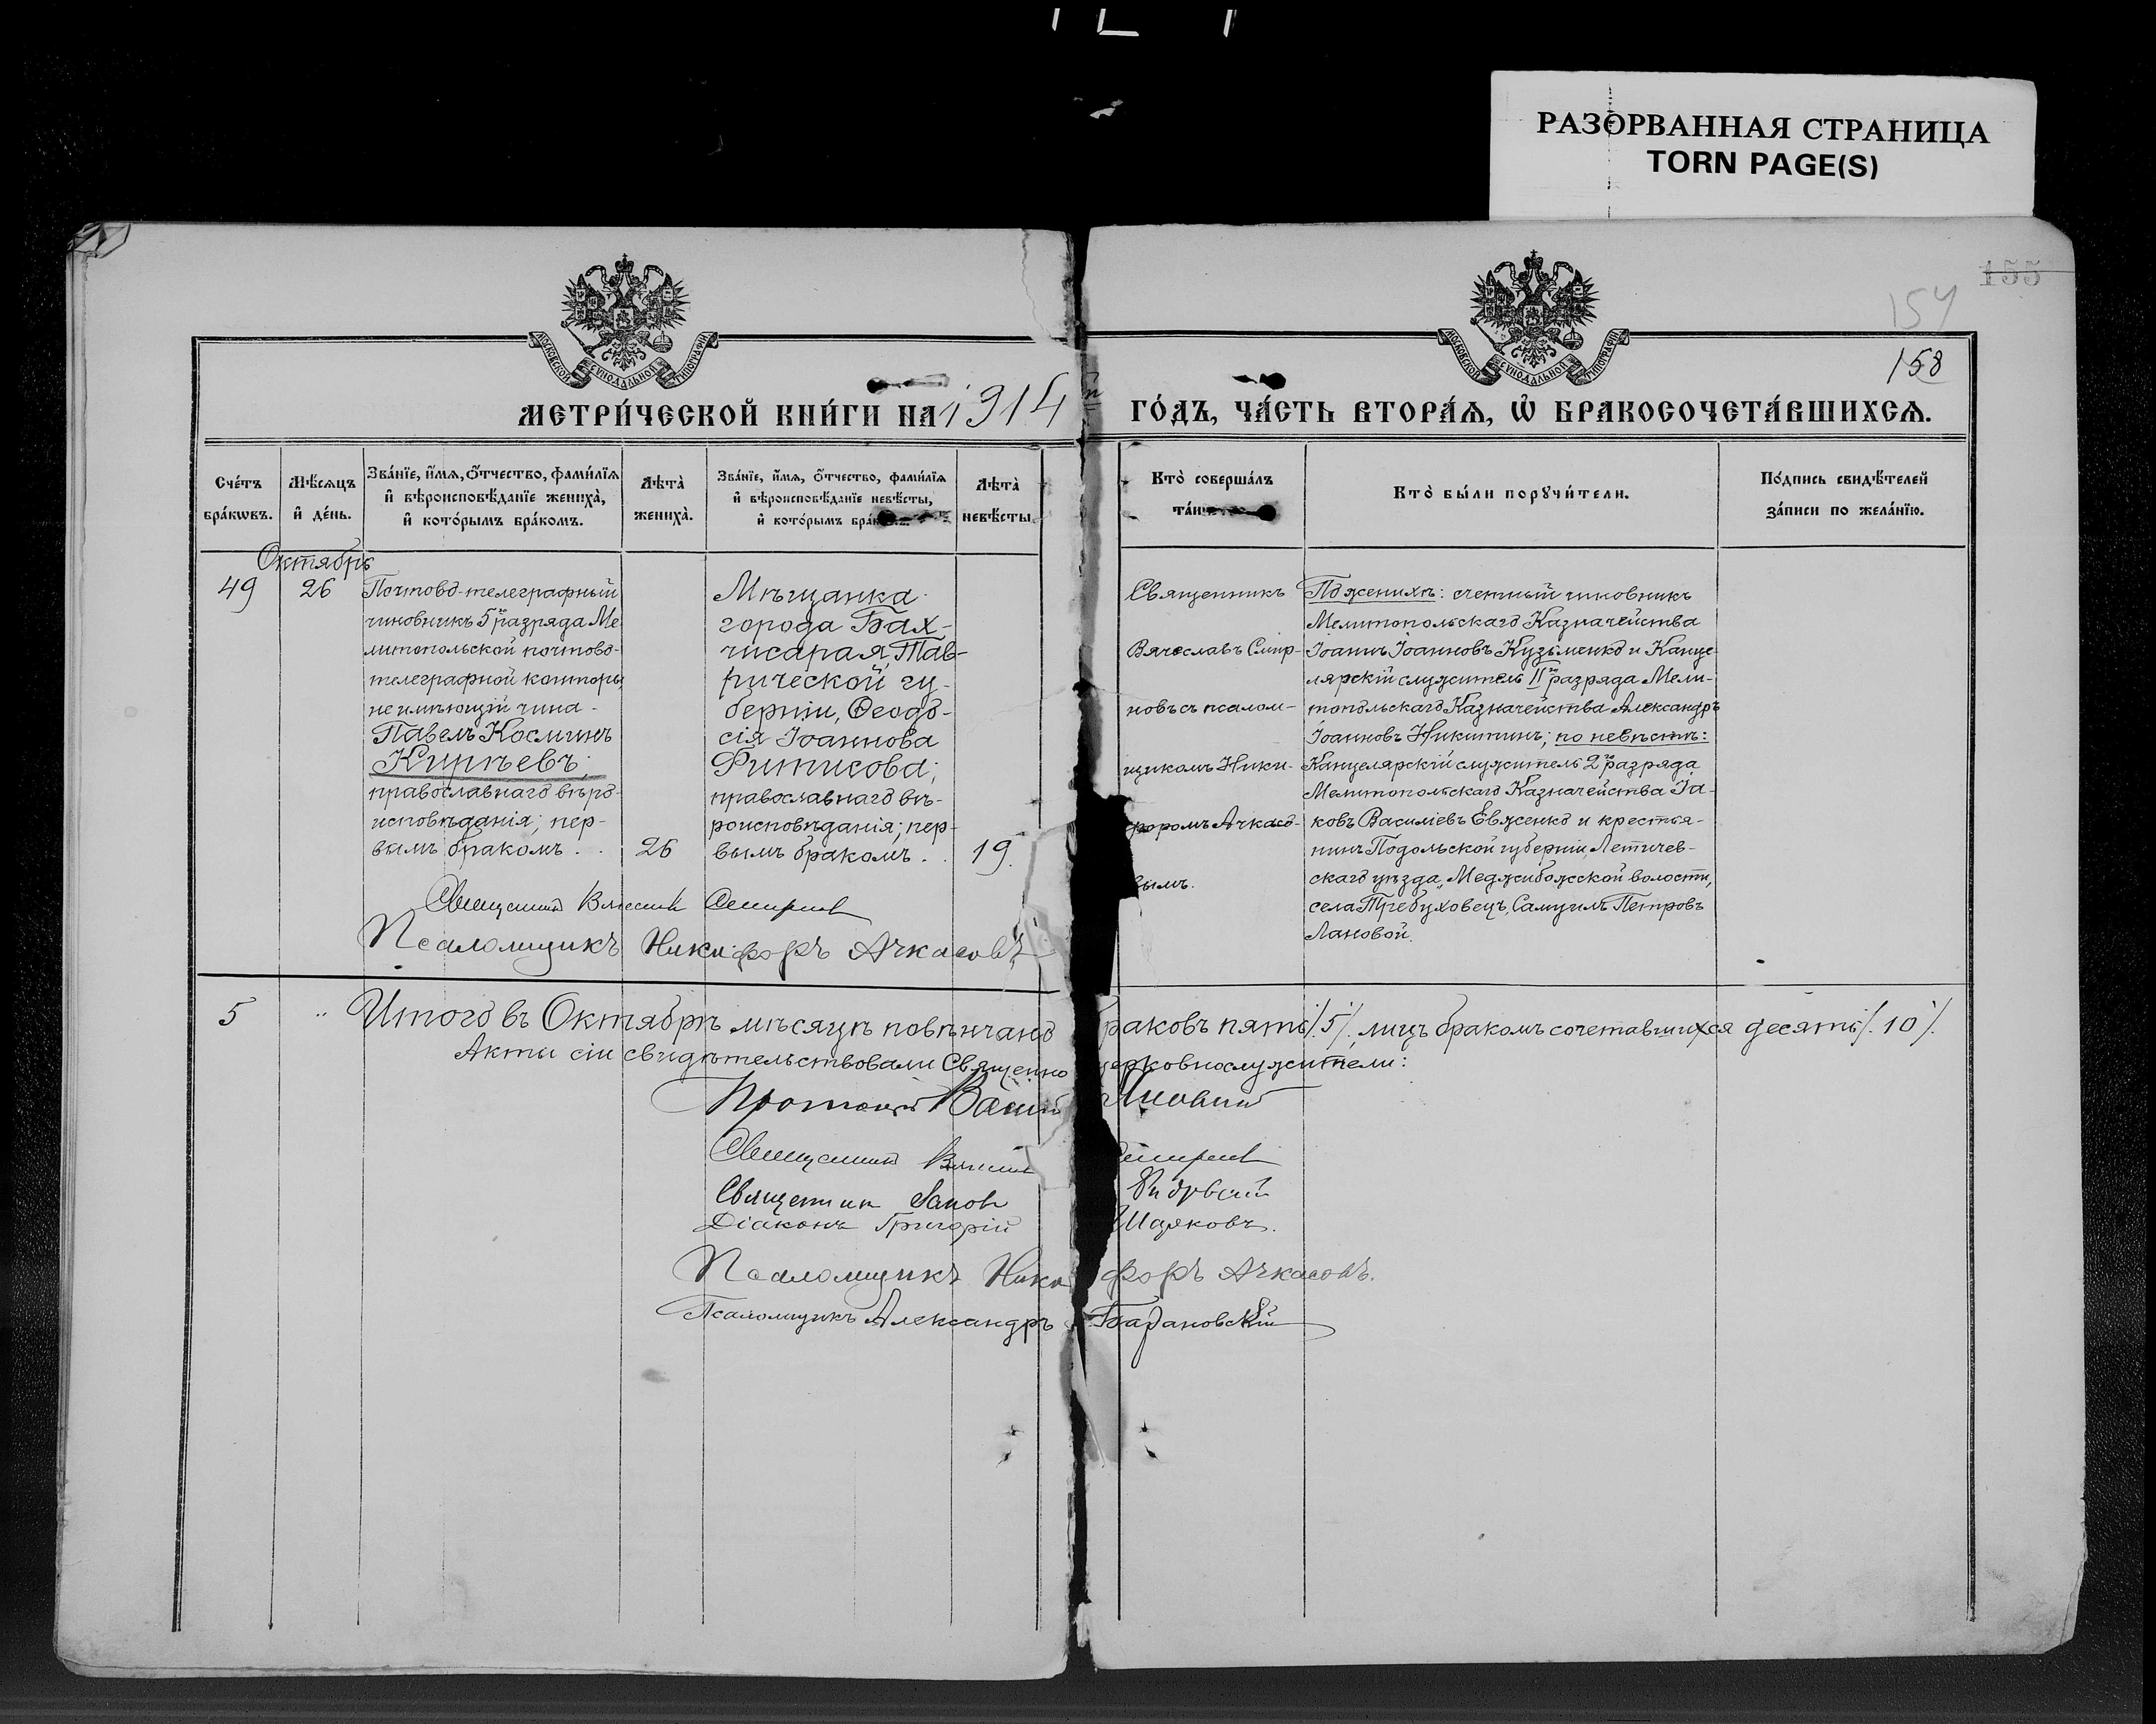 РАЗОРВАННАЯ СТРАНИЦА
TORN PAGE(S)
155
154
158
МОСКОВСКОЙ СѴНОДАЛЬНОЙ ТИПОГРАФІИ
МОСКОВСКОЙ СѴНОДАЛЬНОЙ ТИПОГРАФІИ
МЕТРИ́ЧЕСКОЙ КНИ́ГИ НА 1914 й ГО́ДЪ, ЧА́СТЬ ВТОРА́Ѧ, Ѡ҆ БРАКОСОЧЕТА́ВШИХСѦ.
Сче́тъ
бра́кѡвъ.
Мѣ́сѧцъ
и҆ де́нь.
Зва́нїе, и҆́мѧ, ѻ҆́тчество, фами́лїѧ
и҆ вѣроисповѣ́данїе жениха̀,
и҆ кото́рымъ бра́комъ.
Лѣта̀
жениха̀.
Зва́нїе, и҆́мѧ, ѻ҆́тчество, фами́лїѧ
и҆ вѣроисповѣ́данїе невѣ́сты,
и҆ кото́рымъ бра́к
Лѣта̀
невѣ́сты
Кто̀ соверша́лъ
та́ин
Кто̀ бы́ли порꙋчи́тели.
По́дпись свидѣ́телей
за́писи по жела́нїю.
Октябрь
49
26
Почтово-телеграфный
чиновникъ 5го разряда Ме
литопольской почтово-
телеграфной конторы,
не имѣющій чина -
Павелъ Косминъ
Кирѣевъ;
православнаго вѣро-
исповѣданія; пер-
вымъ бракомъ . .
26
Мѣщанка
города Бах-
чисарая, Тав-
рической гу-
берніи, Ѳеодо-
сія Іоаннова
Фитисова;
православнаго вѣ-
роисповѣданія; пер-
вымъ бракомъ . .
19.
Священникъ
Вячеславъ Смир-
новъ съ псалом-
щикомъ Ники-
форомъ Ачкасо-
вымъ.
По женихѣ: счетный чиновникъ
Мелитопольскаго Казначейства
Іоаннъ Іоанновъ Кузьменко и Канце-
лярскій служитель II го разряда Мели-
топольскаго Казначейства Александръ
Іоанновъ Никитинъ; по невѣстѣ:
Канцелярскій служитель 2го разряда
Мелитопольскаго Казначейства Іа-
ковъ Василіевъ Евженко и крестья-
нинъ Подольской губерніи, Летичев-
скаго уѣзда, Меджибожской волости,
села Требуховецъ, Самуилъ Петровъ
Лановой.
Священник Вячеслав Смирнов
Псаломщикъ Никифоръ Ачкасовъ
5 " Итого въ Октябрѣ мѣсяцѣ повѣнчано раковъ пять /. 5 /., лицъ бракомъ сочетавшихся десять /. 10 /.
Акты сіи свидѣтельствовали Священно церковнослужители:
Протоіерей Васил
Священник Вячеслав Смирнов
Священник Іаков
Діаконъ Григорій
Псаломщикъ Никифоръ Ачкасовъ.
Псаломщикъ Александръ Барановскій